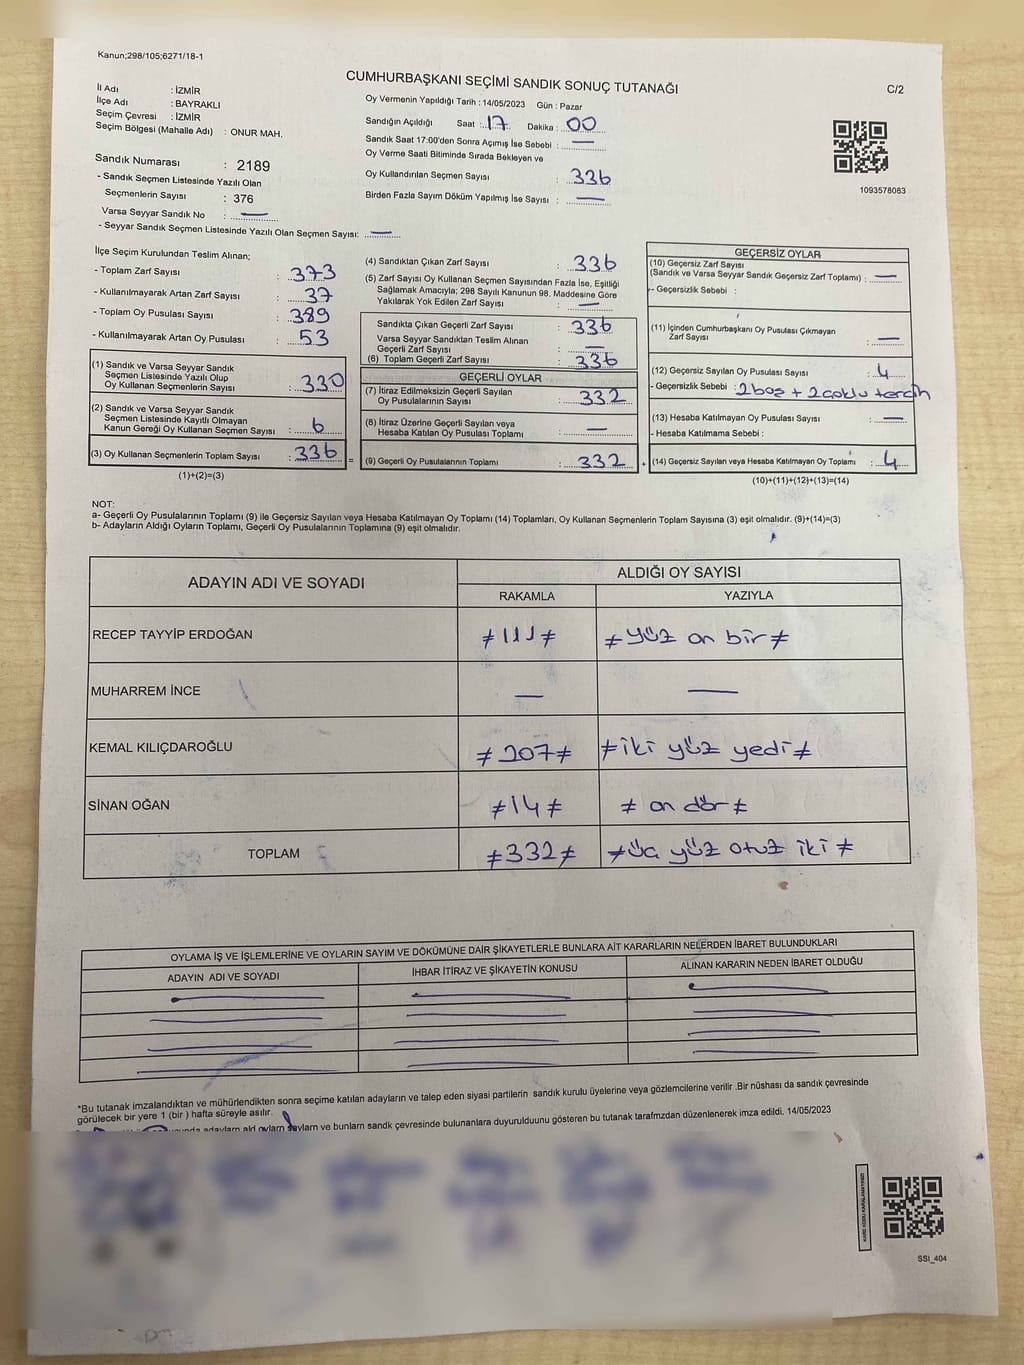 Kanun;298/105;6271/18-1
CUMHURBAŞKANI SEÇİMİ SANDIK SONUÇ TUTANAĞI
C/2
İl Adı : İZMİR
İlçe Adı : BAYRAKLI
Seçim Çevresi : İZMİR
Seçim Bölgesi (Mahalle Adı) : ONUR MAH.
Oy Vermenin Yapıldığı Tarih : 14/05/2023 Gün : Pazar
Sandığın Açıldığı Saat : 17 Dakika : 00
Sandık Saat 17:00'den Sonra Açımış İse Sebebi : —
Oy Verme Saati Bitiminde Sırada Bekleyen ve
Oy Kullandırılan Seçmen Sayısı : 336
Birden Fazla Sayım Döküm Yapılmış İse Sayısı : —
1093578083
Sandık Numarası : 2189
- Sandık Seçmen Listesinde Yazılı Olan
Seçmenlerin Sayısı : 376
Varsa Seyyar Sandık No : —
- Seyyar Sandık Seçmen Listesinde Yazılı Olan Seçmen Sayısı: —
İlçe Seçim Kurulundan Teslim Alınan;
- Toplam Zarf Sayısı : 373
- Kullanılmayarak Artan Zarf Sayısı : 37
- Toplam Oy Pusulası Sayısı : 389
- Kullanılmayarak Artan Oy Pusulası : 53
(1) Sandık ve Varsa Seyyar Sandık
Seçmen Listesinde Yazılı Olup
Oy Kullanan Seçmenlerin Sayısı : 330
(2) Sandık ve Varsa Seyyar Sandık
Seçmen Listesinde Kayıtlı Olmayan
Kanun Gereği Oy Kullanan Seçmen Sayısı : 6
(3) Oy Kullanan Seçmenlerin Toplam Sayısı : 336 =
(1)+(2)=(3)
(4) Sandıktan Çıkan Zarf Sayısı : 336
(5) Zarf Sayısı Oy Kullanan Seçmen Sayısından Fazla İse, Eşitliği
Sağlamak Amacıyla; 298 Sayılı Kanunun 98. Maddesine Göre
Yakılarak Yok Edilen Zarf Sayısı : —
Sandıkta Çıkan Geçerli Zarf Sayısı : 336
Varsa Seyyar Sandıktan Teslim Alınan
Geçerli Zarf Sayısı : —
(6) Toplam Geçerli Zarf Sayısı : 336
GEÇERLİ OYLAR
(7) İtiraz Edilmeksizin Geçerli Sayılan
Oy Pusulalarının Sayısı : 332
(8) İtiraz Üzerine Geçerli Sayılan veya
Hesaba Katılan Oy Pusulası Toplamı : —
(9) Geçerli Oy Pusulalarının Toplamı : 332 +
GEÇERSİZ OYLAR
(10) Geçersiz Zarf Sayısı
(Sandık ve Varsa Seyyar Sandık Geçersiz Zarf Toplamı) : —
- Geçersizlik Sebebi :
(11) İçinden Cumhurbaşkanı Oy Pusulası Çıkmayan
Zarf Sayısı : —
(12) Geçersiz Sayılan Oy Pusulası Sayısı : 4
- Geçersizlik Sebebi : 2 boş + 2 çoklu tercih
(13) Hesaba Katılmayan Oy Pusulası Sayısı : —
- Hesaba Katılmama Sebebi :
(14) Geçersiz Sayılan veya Hesaba Katılmayan Oy Toplamı : 4
(10)+(11)+(12)+(13)=(14)
NOT:
a- Geçerli Oy Pusulalarının Toplamı (9) ile Geçersiz Sayılan veya Hesaba Katılmayan Oy Toplamı (14) Toplamları, Oy Kullanan Seçmenlerin Toplam Sayısına (3) eşit olmalıdır. (9)+(14)=(3)
b- Adayların Aldığı Oyların Toplamı, Geçerli Oy Pusulalarının Toplamına (9) eşit olmalıdır.
ADAYIN ADI VE SOYADI
ALDIĞI OY SAYISI
RAKAMLA YAZIYLA
RECEP TAYYİP ERDOĞAN ≠111≠ ≠yüz on bir≠
MUHARREM İNCE — —
KEMAL KILIÇDAROĞLU ≠207≠ ≠iki yüz yedi≠
SİNAN OĞAN ≠14≠ ≠ on dör≠
TOPLAM ≠332≠ ≠üç yüz otuz iki≠
OYLAMA İŞ VE İŞLEMLERİNE VE OYLARIN SAYIM VE DÖKÜMÜNE DAİR ŞİKAYETLERLE BUNLARA AİT KARARLARIN NELERDEN İBARET BULUNDUKLARI
ADAYIN ADI VE SOYADI İHBAR İTİRAZ VE ŞİKAYETİN KONUSU ALINAN KARARIN NEDEN İBARET OLDUĞU
*Bu tutanak imzalandıktan ve mühürlendikten sonra seçime katılan adayların ve talep eden siyasi partilerin sandık kurulu üyelerine veya gözlemcilerine verilir .Bir nüshası da sandık çevresinde
görülecek bir yere 1 (bir ) hafta süreyle asılır.
adayların ald oyların sayların ve bunların sandk çevresinde bulunanlara duyurulduunu gösteren bu tutanak tarafmzdan düzenlenerek imza edildi. 14/05/2023
KARE KODU KARALAMAYINIZ!
SSI_404